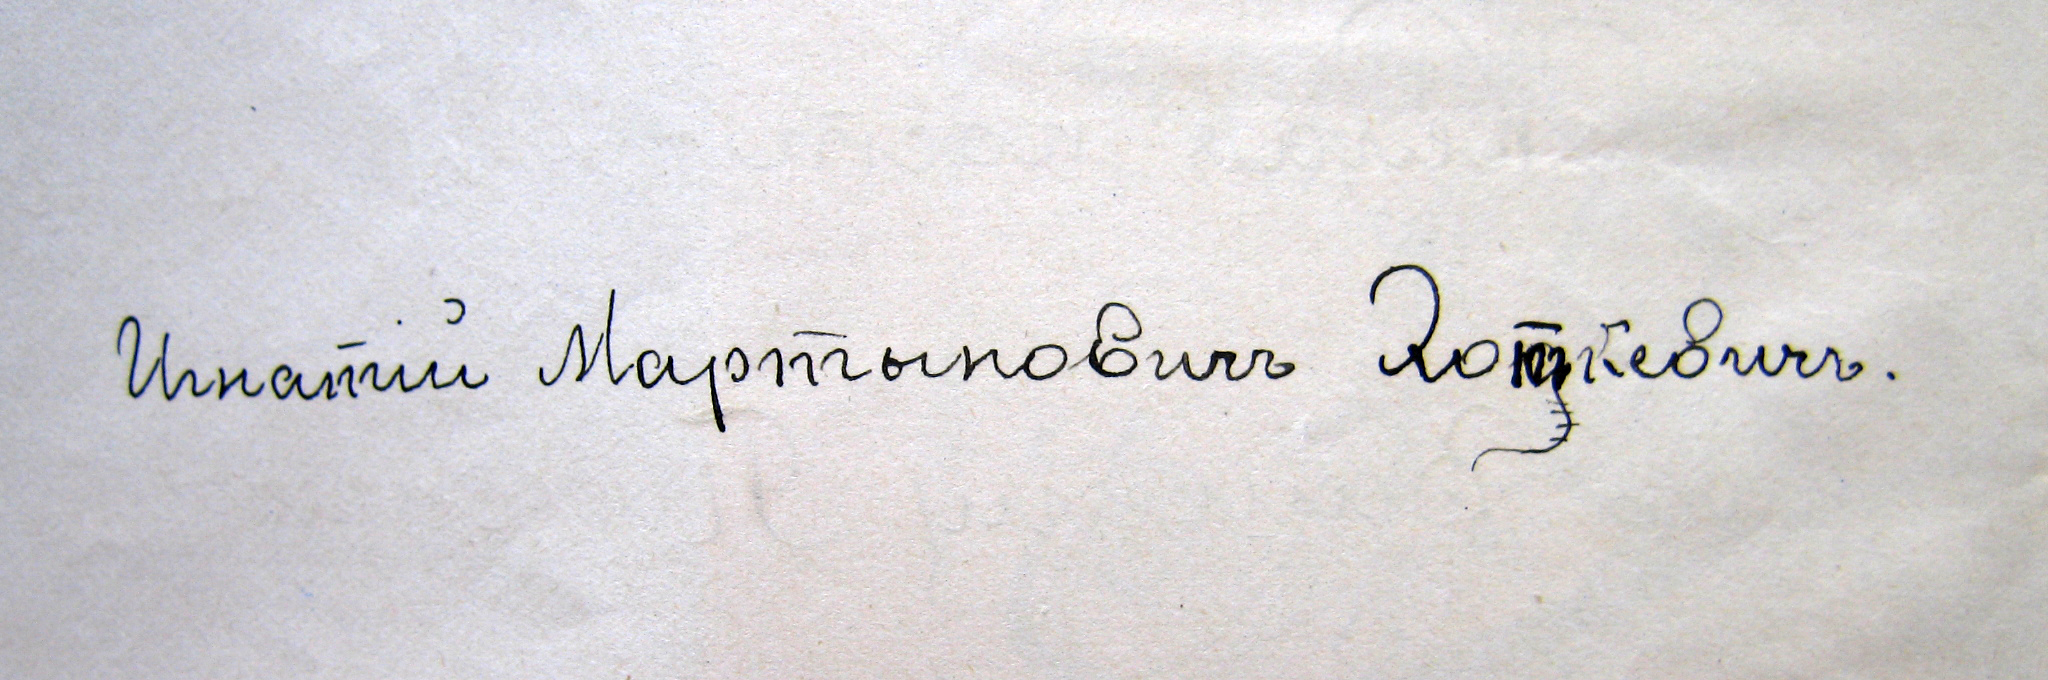 Игнатій Мартыновичъ Хоткевичъ.